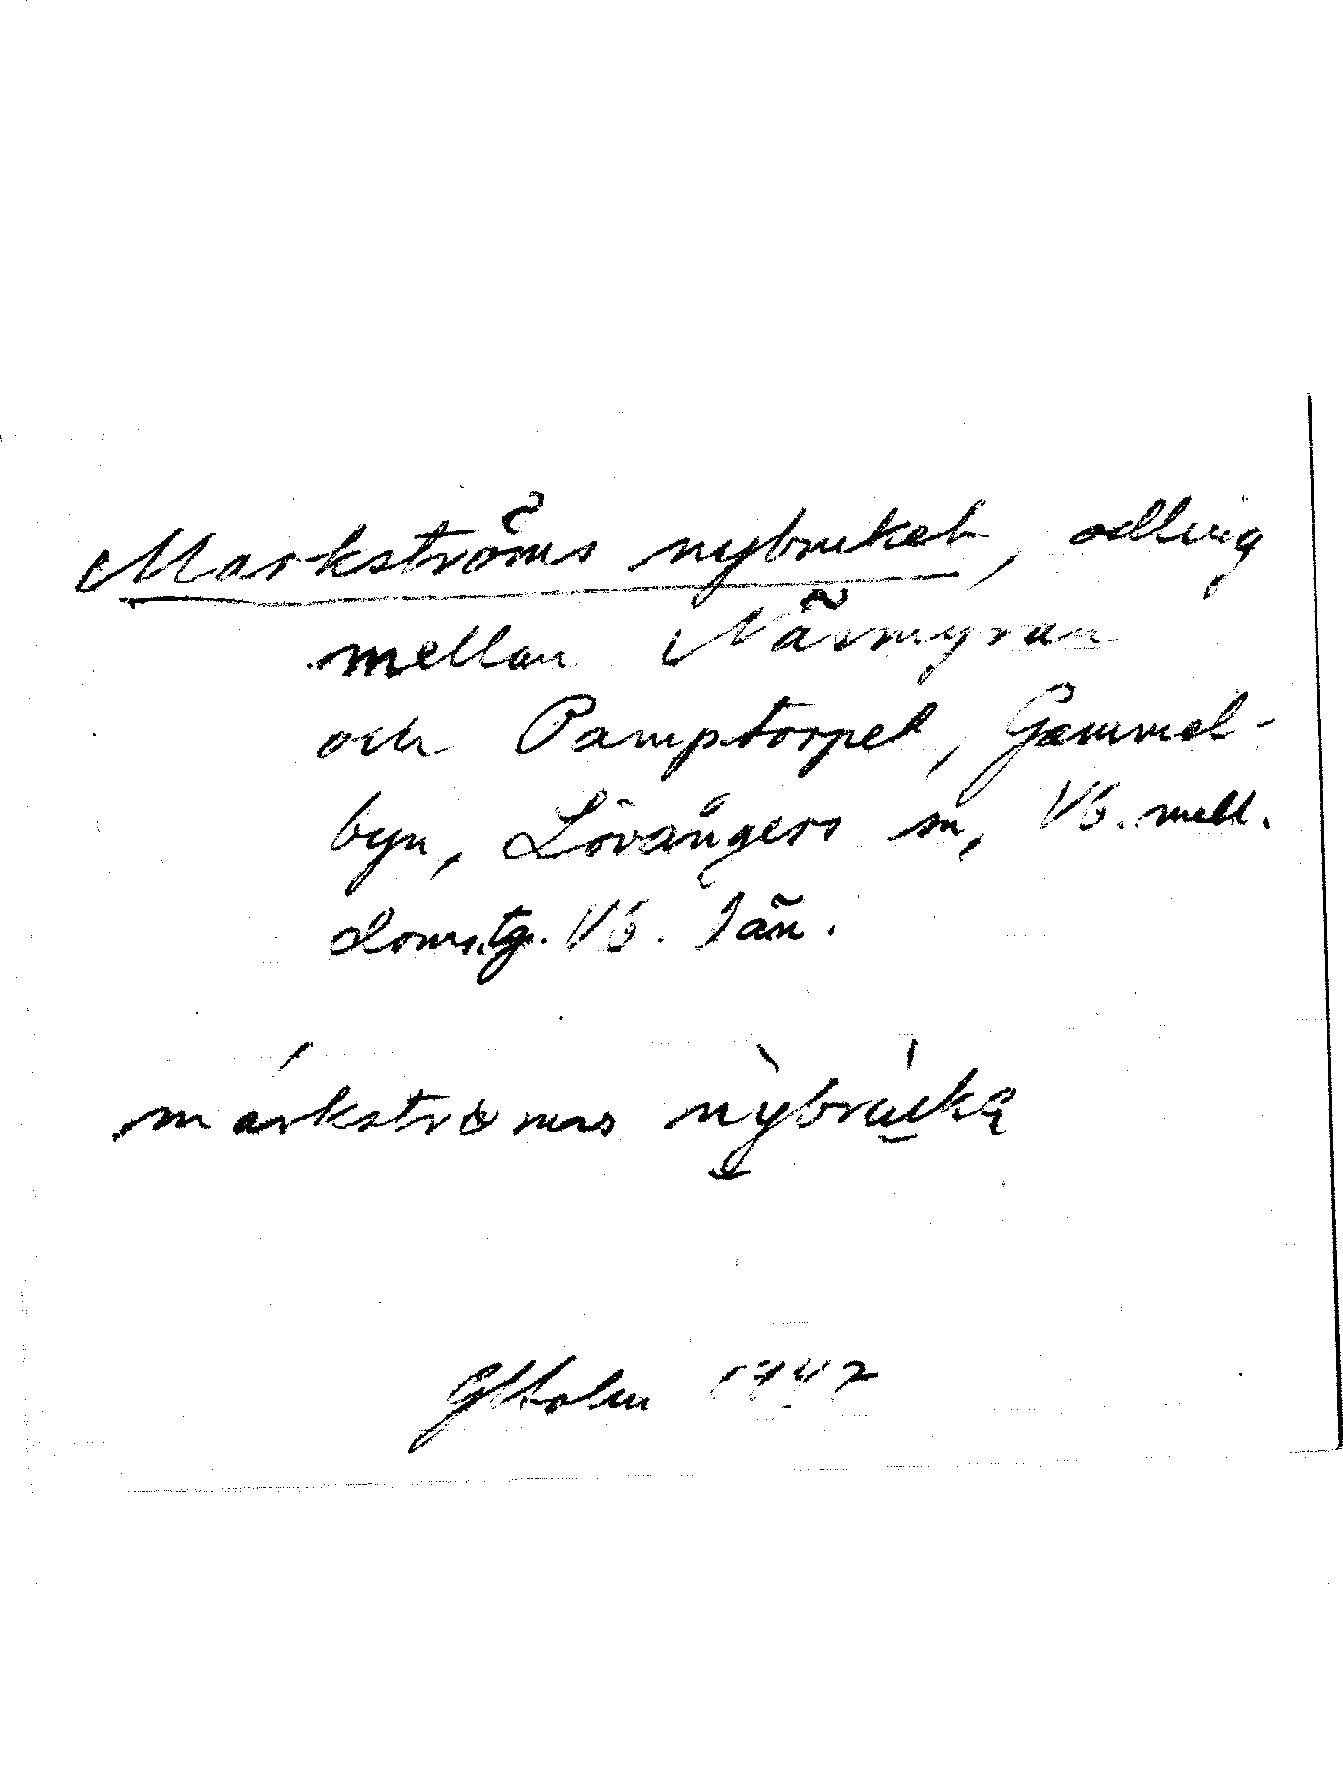 Markströms nybruket, odling
mellan Näsmyran
och Pamptorpet, Gammel-
byn, Lövångers sn, Vb. mell.
doms.tg. Vb. län.
márkströms nỳbrù̲kə
GHolm 1947